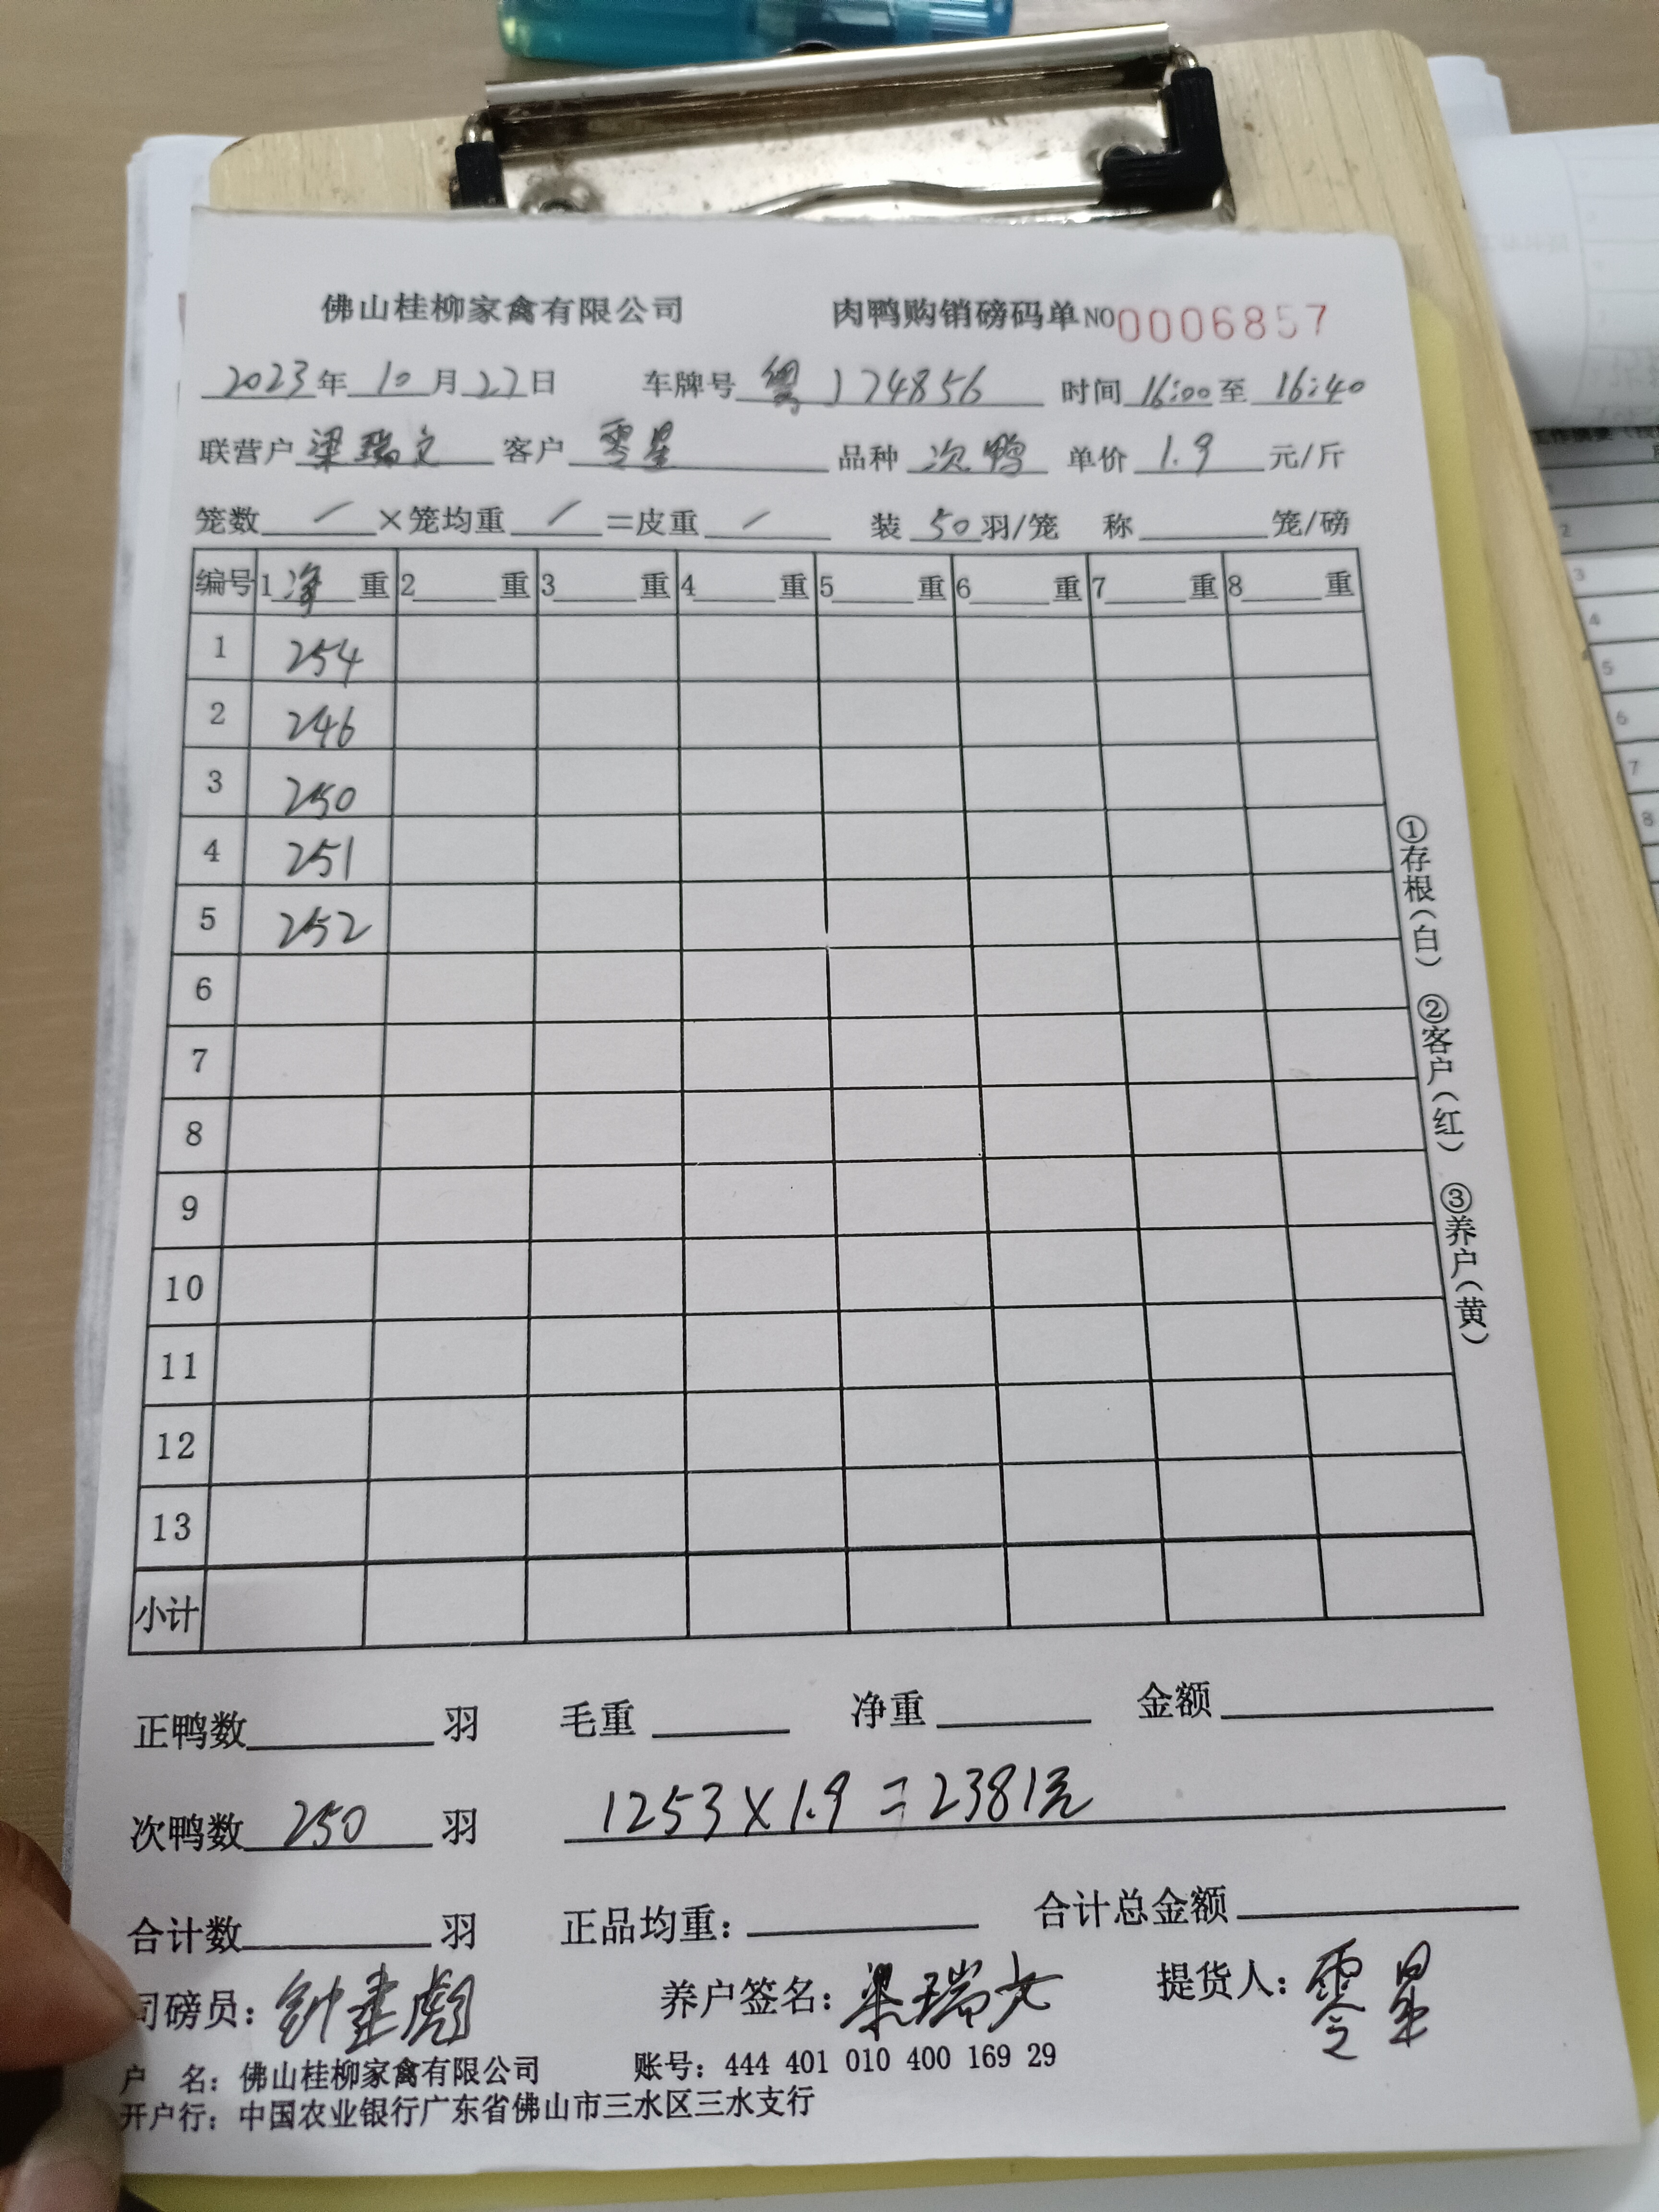 佛山桂柳家禽有限公司 肉鸭购销磅码单 NO 0006857
2023年 10月 22日 车牌号 粤J74856 时间 16:00 至 16:40
联营户 梁瑞文 客户 零星 品种 次鸭 单价 1.9 元/斤
笼数 / ×笼均重 / =皮重 / 装 50 羽/笼 称 笼/磅
编号 1 净 重 2 重 3 重 4 重 5 重 6 重 7 重 8 重
1 254
2 246
3 250
4 251
5 252
6
7
8
9
10
11
12
13
小计
①存根(白) ②客户(红) ③养户(黄)
正鸭数 羽 毛重 净重 金额
次鸭数 250 羽 1253×1.9=2381元
合计数 羽 正品均重: 合计总金额
司磅员: 养户签名: 梁瑞文 提货人: 零星
户 名: 佛山桂柳家禽有限公司 账号: 444 401 010 400 169 29
开户行: 中国农业银行广东省佛山市三水区三水支行